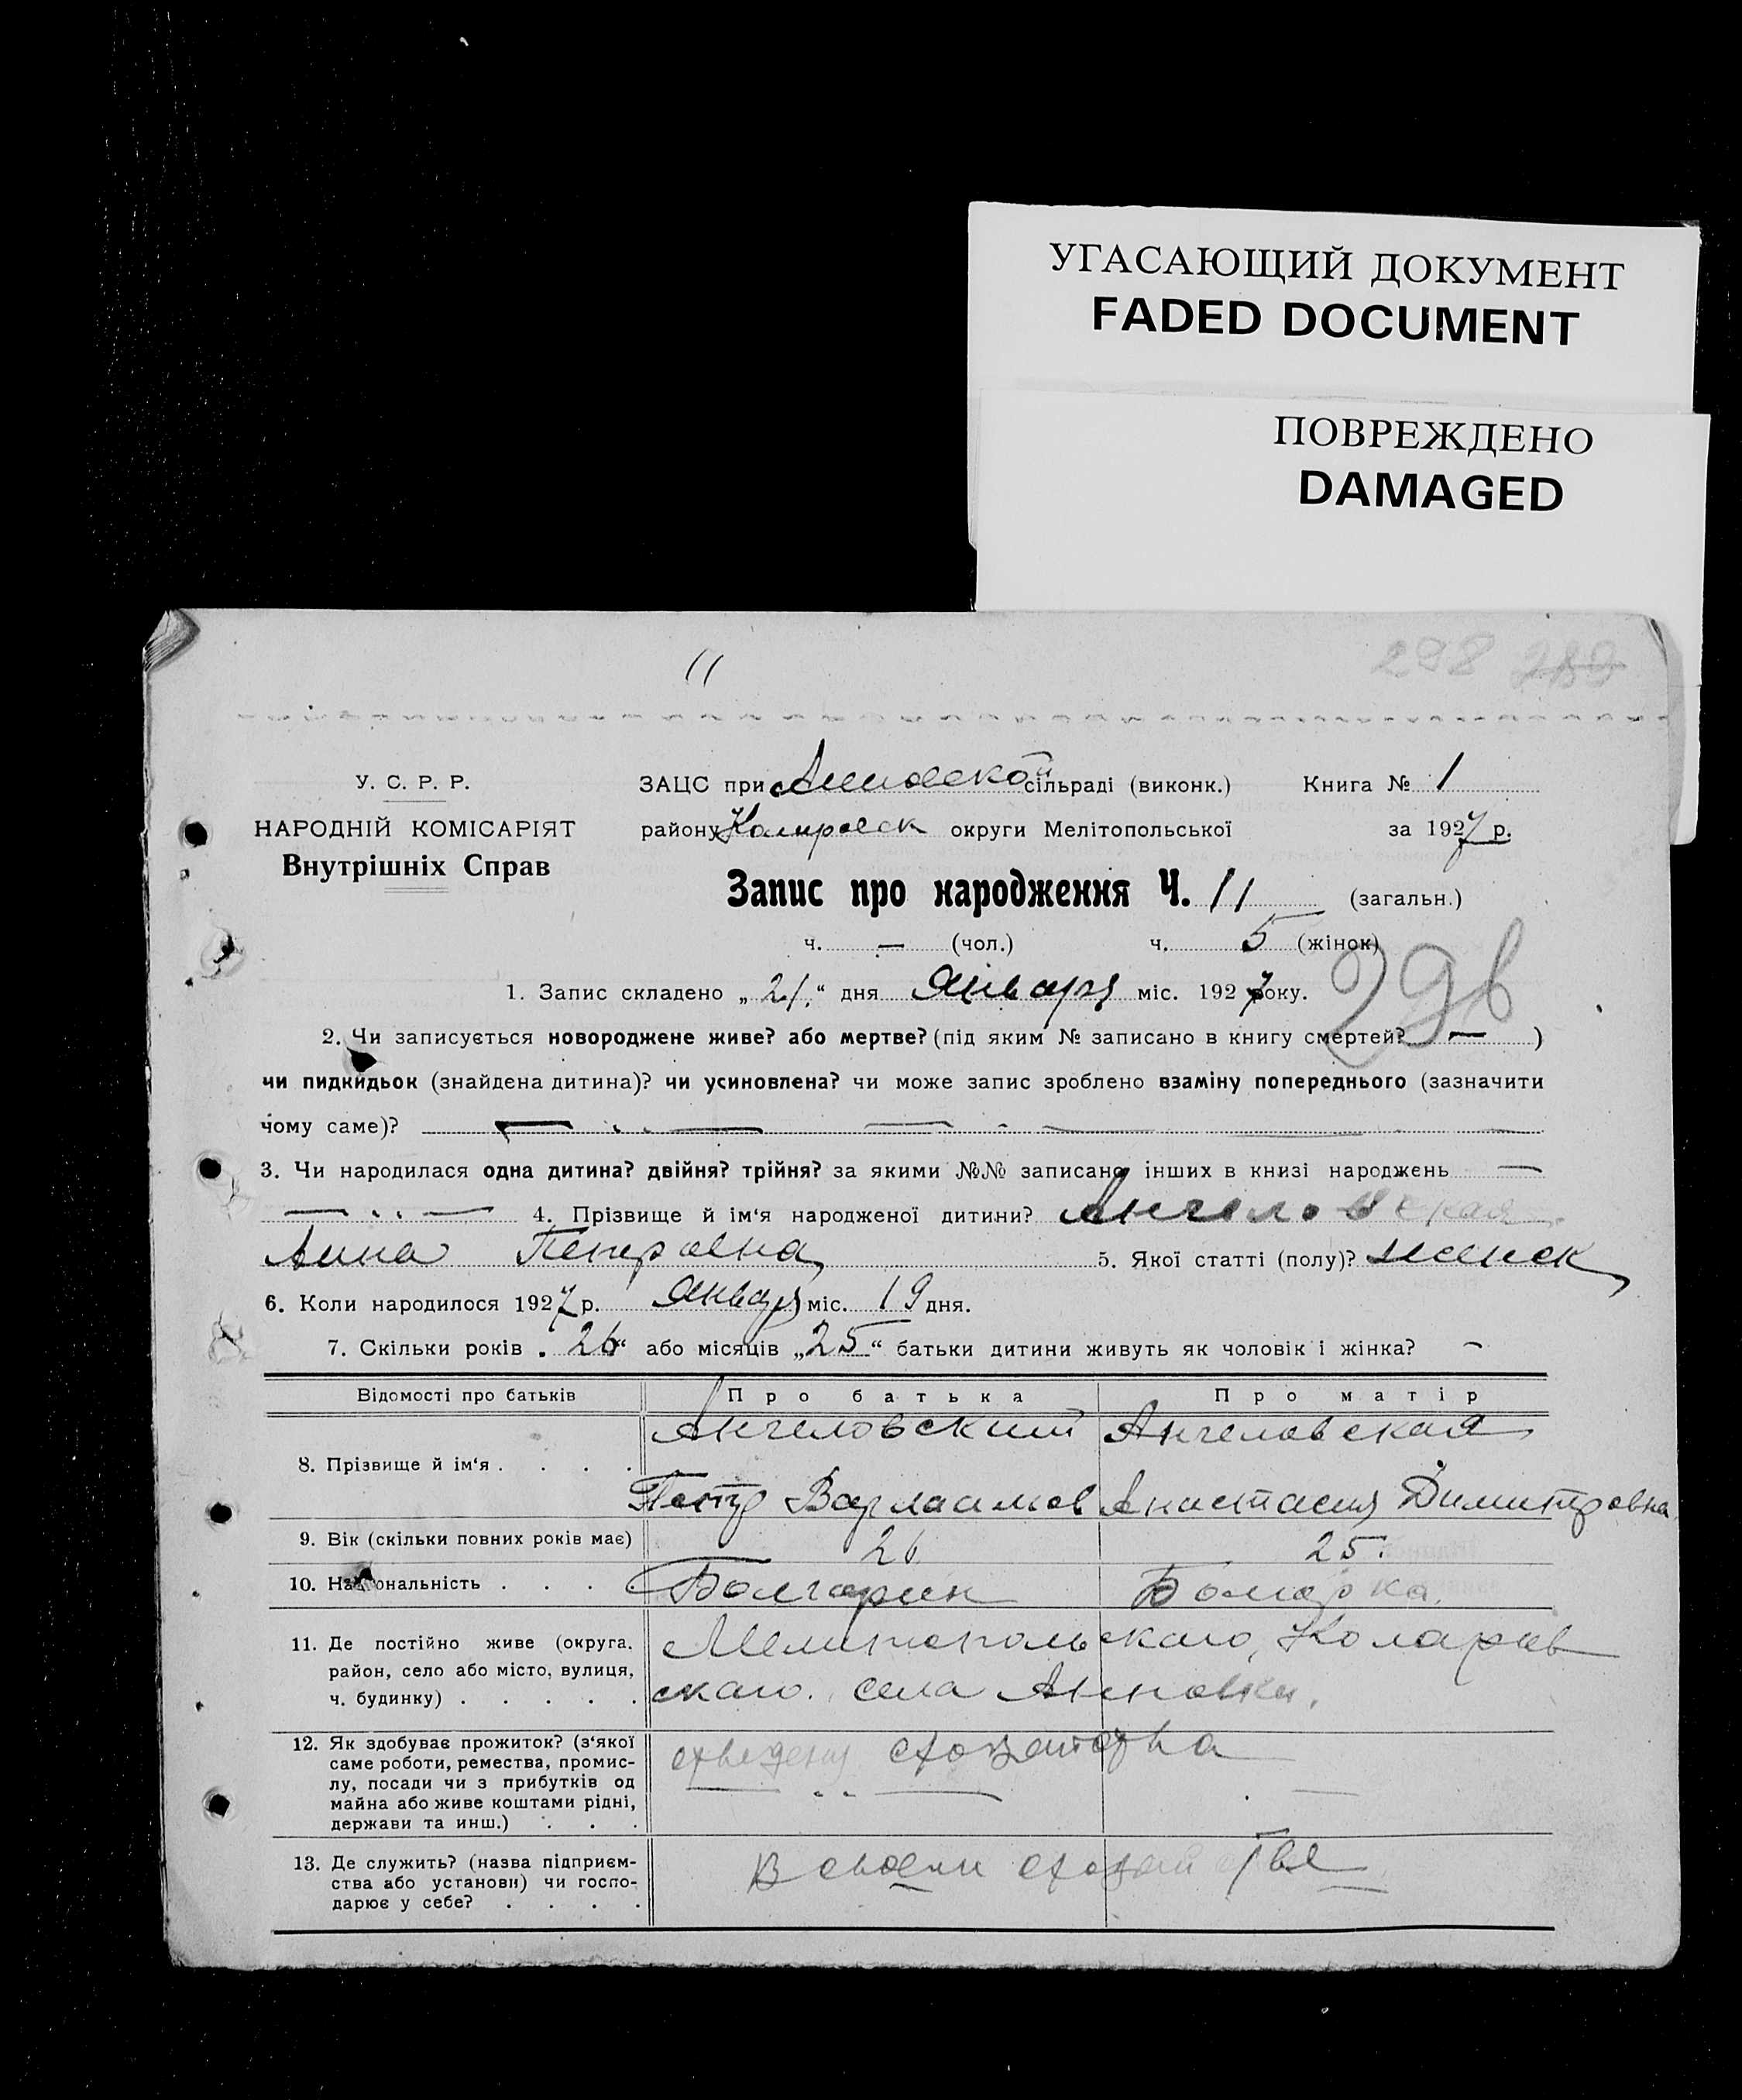 УГАСАЮЩИЙ ДОКУМЕНТ
FADED DOCUMENT
ПОВРЕЖДЕНО
DAMAGED
11
298 289
У. С. Р. Р.
НАРОДНІЙ КОМІСАРІЯТ
Внутрішніх Справ
ЗАЦС при Анновской сільраді (виконк.) Книга № 1
району округи Мелітопольської за 1927 р.
Запис про народження Ч. 11 (загальн.)
ч. — (чол.) ч. 5 (жінок)
1. Запис складено „21.“ дня Января міс. 1927 року.
2. Чи записується новороджене живе? або мертве? (під яким № записано в книгу смертей? — )
чи пидкидьок (знайдена дитина)? чи усиновлена? чи може запис зроблено взаміну попереднього (зазначити
чому саме)? —
3. Чи народилася одна дитина? двійня? трійня? за якими №№ записано інших в книзі народжень —
4. Прізвище й ім‘я народженої дитини? Ангеловская
Анна Петровна 5. Якої статті (полу)? женск
6. Коли народилося 1927 р. Января міс. 19 дня.
7. Скільки років „26“ або місяців „25“ батьки дитини живуть як чоловік і жінка? —
Відомості про батьків Про батька Про матір
8. Прізвище й ім‘я . . . .
Ангеловский Ангеловская
Петр Варлаамов Анастасия Димитровна
9. Вік (скільки повних років має) 26 25.
10. Національність . . . Болгарин Болгарка.
11. Де постійно живе (округа,
район, село або місто, вулиця,
ч. будинку) . . . . .
Мелитопольскаго, Коларов
скаго. села Анновки.
12. Як здобуває прожиток? (з‘якої
саме роботи, ремества, промис-
лу, посади чи з прибутків од
майна або живе коштами рідні,
держави та инш.) . . .
13. Де служить? (назва підприєм-
ства або установи) чи госпо-
дарює у себе? . . . .
В своем